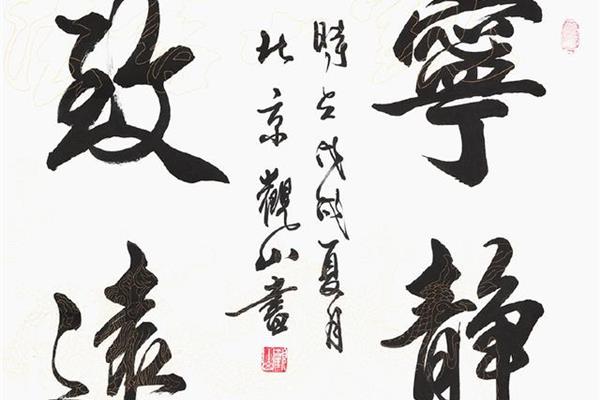 寧靜
時在戊戌夏月
北京觀山書
致遠